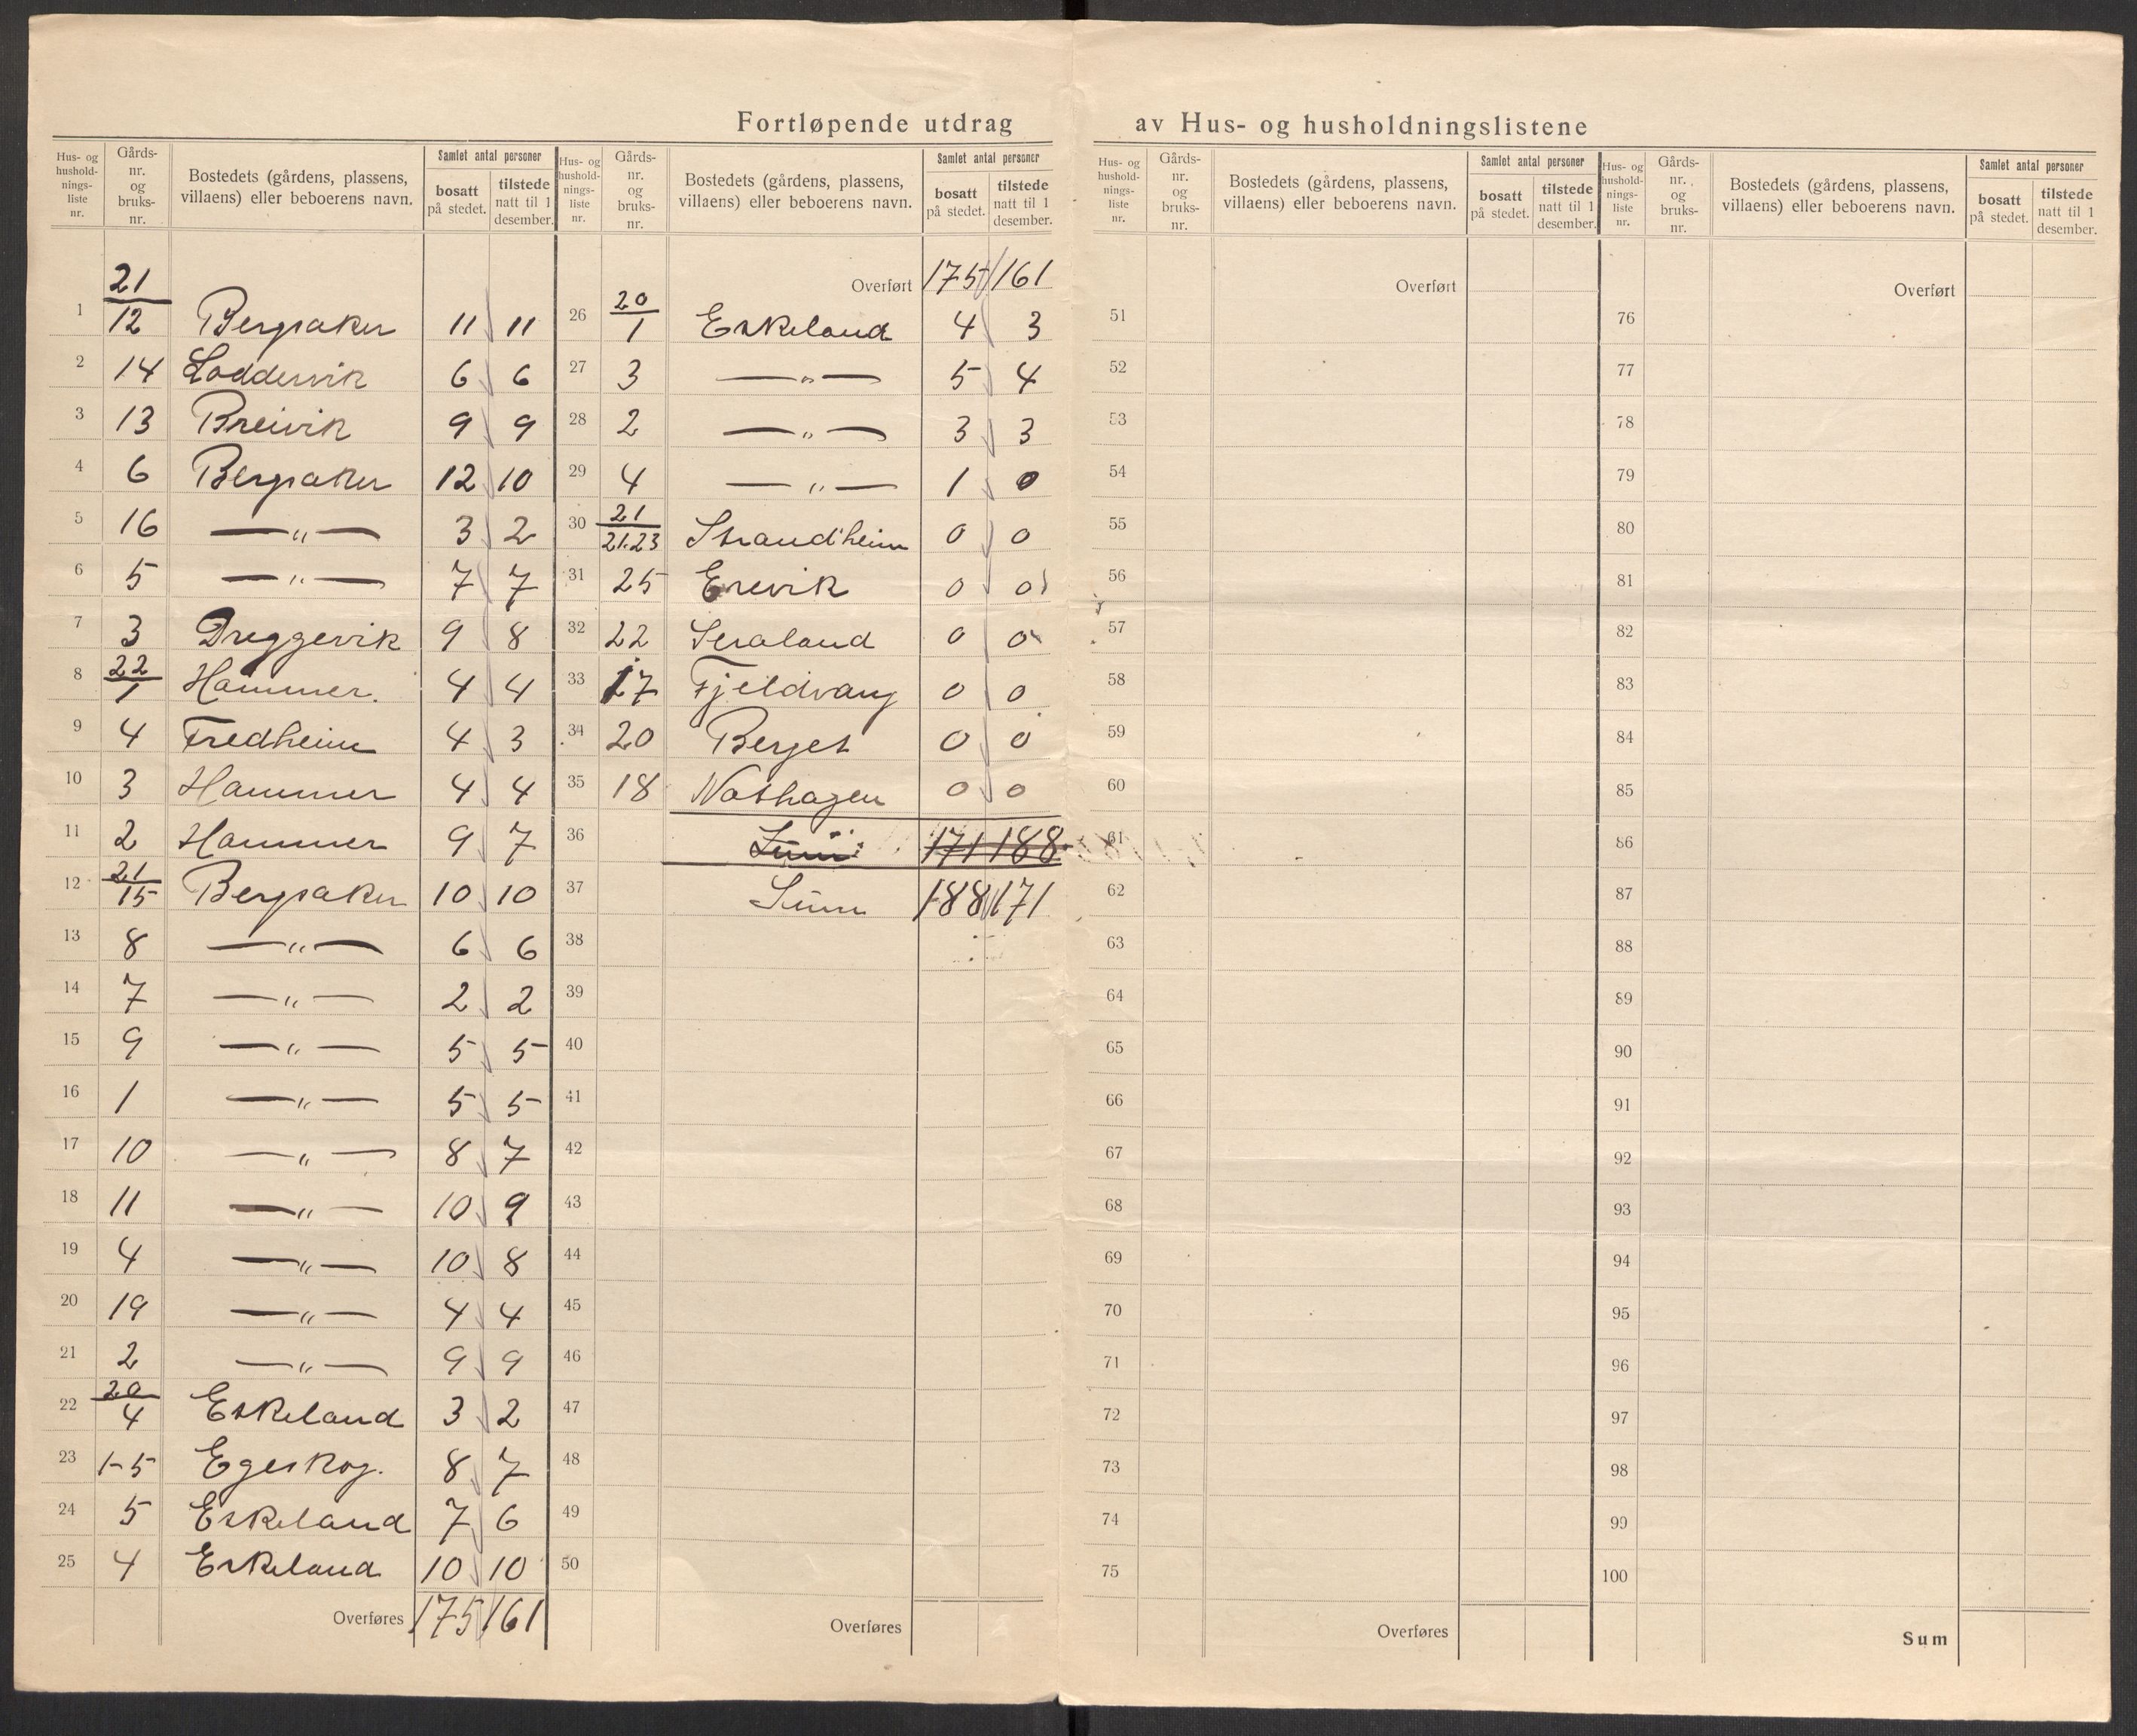 Fortløpende utdrag av Hus- og husholdningslistene
Hus- og hushold- nings- liste nr. | Gårds- nr. og bruks- nr. | Bostedets (gårdens, plassens, villaens) eller beboerens navn. | Samlet antal personer | bosatt på stedet. | tilstede natt til 1 desember.
1 21/12 Bergsaker 11 11
2 14 Loddervik 6 6
3 13 Breivik 9 9
4 6 Bergsaker 12 10
5 16 — „ — 3 2
6 5 — „ — 7 7
7 3 Dreggevik 9 8
8 22/1 Hammer. 4 4
9 4 Fredheim 4 3
10 3 Hammer 4 4
11 2 Hammer 9 7
12 21/15 Bergsaker 10 10
13 8 — „ — 6 6
14 7 — „ — 2 2
15 9 — „ — 5 5
16 1 — „ — 5 5
17 10 — „ — 8 7
18 11 — „ — 10 9
19 4 — „ — 10 8
20 19 — „ — 4 4
21 2 — „ — 9 9
22 20/4 Eskeland 3 2
23 1-5 Egeskog. 8 7
24 5 Eskeland 7 6
25 4 Eskeland 10 10
Overføres 175 161
Hus- og hushold- nings- liste nr. | Gårds- nr. og bruks- nr. | Bostedets (gårdens, plassens, villaens) eller beboerens navn. | Samlet antal personer | bosatt på stedet. | tilstede natt til 1 desember.
Overført 175 161
26 20/1 Eskeland 4 3
27 3 — „ — 5 4
28 2 — „ — 3 3
29 4 — „ — 1 0
30 21/21.23 Strandheim 0 0
31 25 Erevik 0 0
32 22 Seraland 0 0
33 17 Fjeldvang 0 0
34 20 Berget 0 0
35 18 Nothagen 0 0
36 Sum 171 188
37 Sum 188 171
38
39
40
41
42
43
44
45
46
47
48
49
50
Overføres
Hus- og hushold- nings- liste nr. | Gårds- nr. og bruks- nr. | Bostedets (gårdens, plassens, villaens) eller beboerens navn. | Samlet antal personer | bosatt på stedet. | tilstede natt til 1 desember.
Overført
51
52
53
54
55
56
57
58
59
60
61
62
63
64
65
66
67
68
69
70
71
72
73
74
75
Overføres
Hus- og hushold- nings- liste nr. | Gårds- nr. og bruks- nr. | Bostedets (gårdens, plassens, villaens) eller beboerens navn. | Samlet antal personer | bosatt på stedet. | tilstede natt til 1 desember.
Overført
76
77
78
79
80
81
82
83
84
85
86
87
88
89
90
91
92
93
94
95
96
97
98
99
100
Sum